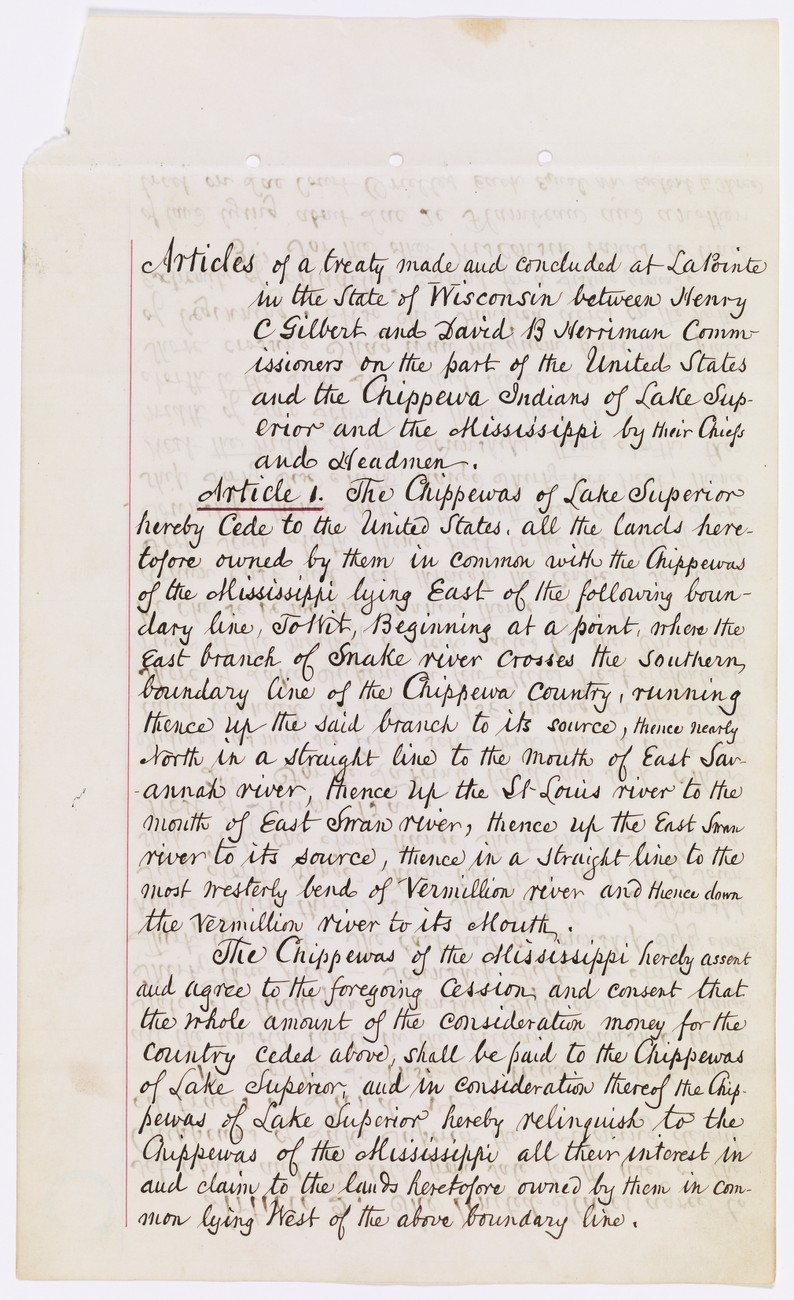 Articles of a treaty made and concluded at LaPointe
in the State of Wisconsin between Henry
C Gilbert and David B Herriman Comm-
issioners on the part of the United States
and the Chippewa Indians of Lake Sup-
erior and the Mississippi by their Chiefs
and Headmen.
Article 1. The Chippewas of Lake Superior
hereby Cede to the United States, all the lands here-
tofore owned by them in common with the Chippewas
of the Mississippi lying East of the following boun-
dary line, ToWit, Beginning at a point, where the
East branch of Snake river crosses the Southern
boundary line of the Chippewa Country, running
thence up the said branch to its source, thence nearly
North in a straight line to the mouth of East Sav-
-annah river, thence up the St Louis river to the
mouth of East Swan river, thence up the East Swan
river to its source, thence in a straight line to the
most westerly bend of Vermillion river and thence down
the Vermillion river to its Mouth.
The Chippewas of the Mississippi hereby assent
and agree to the foregoing Cession, and consent that
the whole amount of the consideration money for the
Country ceded above, shall be paid to the Chippewas
of Lake Superior, and in consideration thereof the Chip-
pewas of Lake Superior hereby relinquish to the
Chippewas of the Mississippi all their interest in
and claim to the lands heretofore owned by them in com-
mon lying West of the above boundary line.